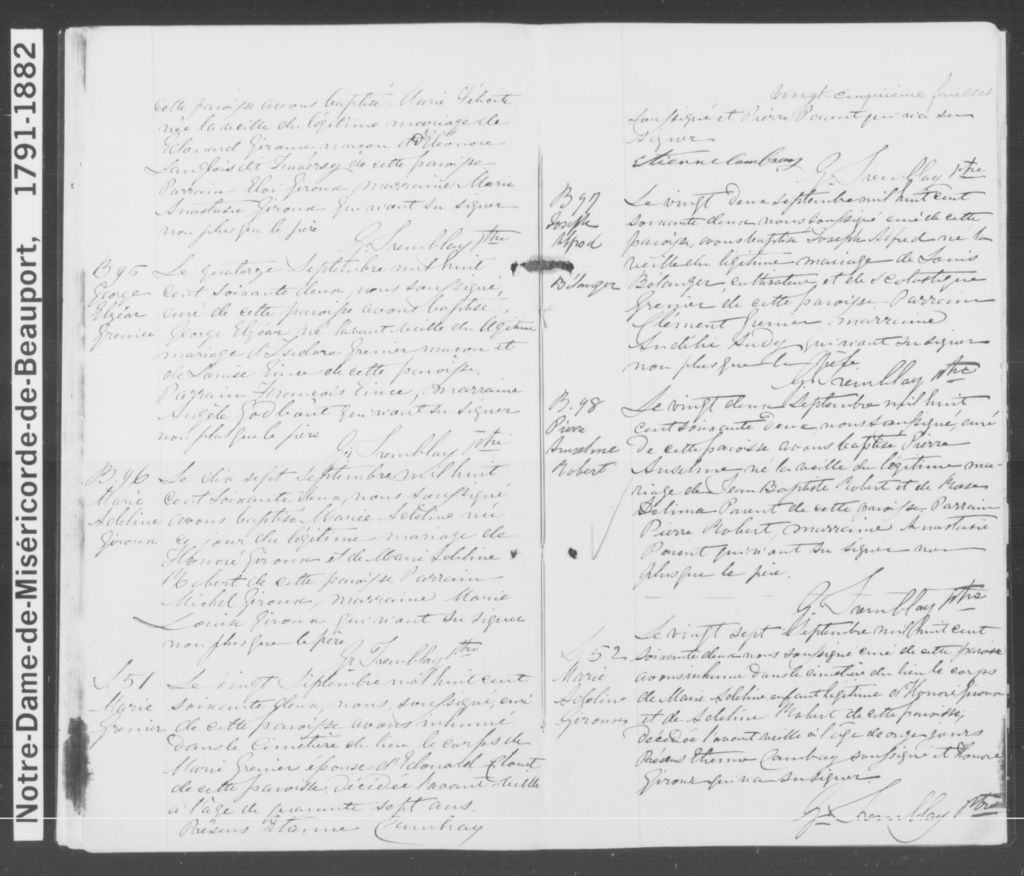 Notre-Dame-de-Miséricorde-de-Beauport, 1791-1882
cette paroisse avons baptisé Marie Félicité
née la veille du légitime mariage de
Edouard Giroux, maçon et d'Eleonore
Langlois dit Traversy de cette paroisse
Parrain Eloi Giroux, marraine Marie
Anastasie Giroux qui n'ont su signer
non plus que le père
G. Tremblay Ptre
B 95
George
Elzéar
Grenier
Le quatorze Septembre mil huit
cent soixante deux, nous soussigné,
curé de cette paroisse avons baptisé
George Elzéar, né l'avant veille du légitime
mariage d'Isidore Grenier maçon et
de Louise Vince de cette paroisse.
Parrain François Vince, marraine
Angèle Godbout qui n'ont su signer
non plus que le père
G. Tremblay Ptre
B. 96
Marie
Adeline
Giroux
Le dix sept Septembre mil huit
cent soixante deux, nous soussigné
avons baptisé Marie Adeline née
ce jour du légitime mariage de
Honoré Giroux et de Marie Adeline
Robert de cette paroisse Parrain
Michel Giroux, marraine Marie
Louise Giroux qui n'ont su signer
non plus que le père
G. Tremblay ptre
S. 51
Marie
Grenier
Le vingt Septembre mil huit cent
soixante deux, nous, soussigné, curé
de cette paroisse avons inhumé
dans le cimetière du lieu le corps de
Marie Grenier épouse d'Edouard
de cette paroisse, décédée l'avant veille
à l'âge de quarante sept ans.
Présens Etienne Cambray
Vingt-cinquième feuillet
soussigné et Pierre Parent qui n'a su
signer
Etienne Cambray
G. Tremblay Ptre
B 97
Joseph
Alfred
Bélanger
Le vingt deux septembre mil huit cent
soixante deux nous soussigné curé de cette
paroisse, avons baptisé Joseph Alfred né la
veille du légitime mariage de Louis
Belanger cultivateur, et de Scolastique
Grenier de cette paroisse Parrain
Clément Grenier, marraine
qui n'ont su signer
non plus que le père.
G. Tremblay ptre
B. 98
Pierre
Anselme
Robert
Le vingt deux Septembre mil huit
cent soixante deux, nous soussigné, curé
de cette paroisse avons baptisé Pierre
Anselme né la veille du légitime ma-
riage de Jean Baptiste Robert et de Rose
Delima Parent de cette paroisse. Parrain
Pierre Robert, marraine Anastasie
Parent qui n'ont su signer non
plus que le père.
G. Tremblay ptre
S. 52
Marie
Adeline
Giroux
Le vingt sept Septembre mil huit cent
soixante deux nous soussigné curé de cette paroisse
avons inhumé dans le cimetière du lieu le corps
de Marie Adeline enfant légitime d'Honoré Giroux
et de Adeline Robert de cette paroisse,
décédée l'avant veille à l'âge de onze jours
Présens Etienne Cambray soussigné et Honoré
Giroux qui n'a su signer
G. Tremblay ptre